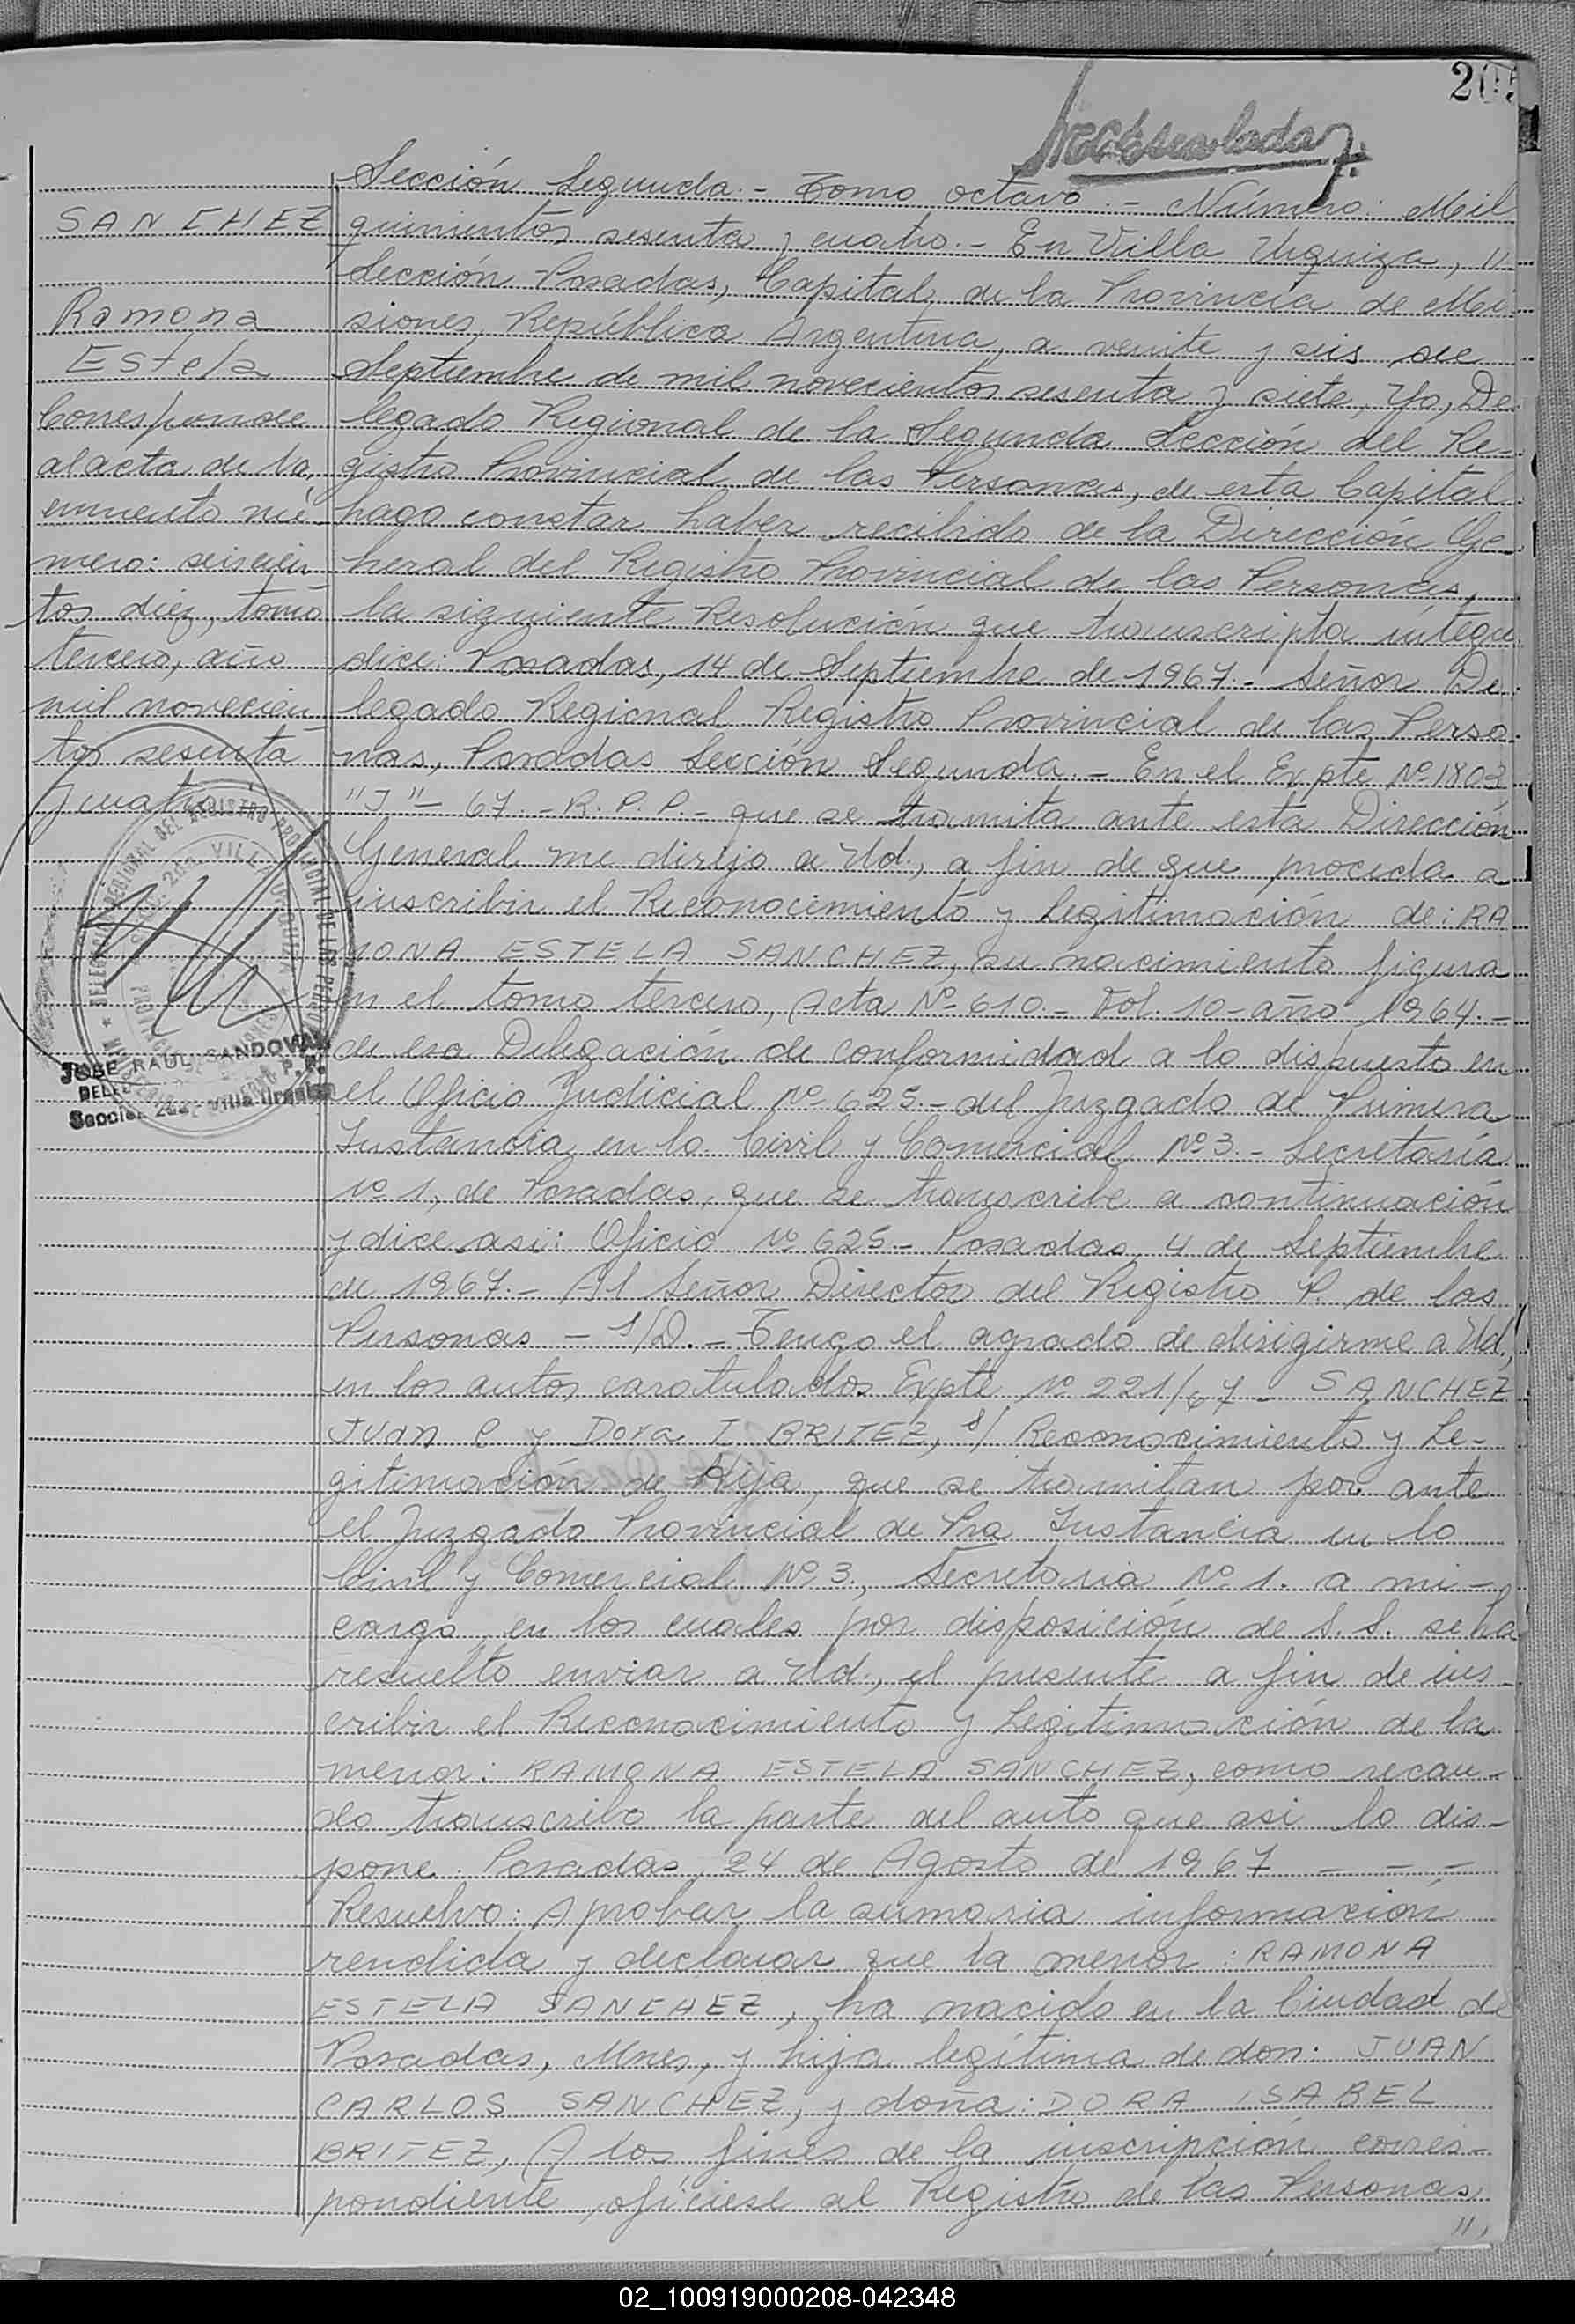 205
Sección Segunda.- Tomo octavo.- Número: Mil
quinientos sesenta y cuatro.- En Villa Urquiza, II
Sección Posadas, Capital de la Provincia de Mi-
siones, República Argentina, a veinte y seis de
Septiembre de mil novecientos sesenta y siete, Yo, De
legado Regional de la Segunda Sección del Re-
gistro Provincial de las Personas, de esta Capital
hago constar haber recibido de la Dirección Ge-
neral del Registro Provincial de las Personas,
la siguiente Resolución que transcripta íntegra
dice: Posadas, 14 de Septiembre de 1967.- Señor De
legado Regional Registro Provincial de las Perso-
nas, Posadas Sección Segunda.- En el Expte Nº 1803
"J"- 67.- R.P.P.- que se tramita ante esta Dirección
General me dirijo a Ud., a fin de que proceda a
inscribir el Reconocimiento y Legitimación de: RA
MONA ESTELA SANCHEZ, su nacimiento figura
en el tomo tercero, Acta Nº 610.- Fol. 10- año 1964.-
de esa Delegación de conformidad a lo dispuesto en
el Oficio Judicial Nº 625.- del Juzgado de Primera
Instancia en lo Civil y Comercial Nº 3.- Secretaría
Nº 1, de Posadas, que se transcribe a continuación
y dice asi: Oficio Nº 625- Posadas, 4 de Septiembre
de 1967.- Al Señor Director del Registro P. de las
Personas - S/D.- Tengo el agrado de dirigirme a Ud.,
en los autos caratulados Expte Nº 221/67- SANCHEZ
JUAN C y Dora I BRITEZ, s/ Reconocimiento y Le-
gitimación de Hija, que se tramitan por ante
el Juzgado Provincial de Pra Instancia en lo
Civil y Comercial Nº 3., Secretaria Nº 1. a mi-
cargo, en los cuales por disposición de S.S. se ha
resuelto enviar a Ud., el presente a fin de ins-
cribir el Reconocimiento y Legitimación de la
menor: RAMONA ESTELA SANCHEZ, como recau-
do transcribo la parte del auto que asi lo dis-
pone. Posadas, 24 de Agosto de 1967 - - -
Resuelvo: Aprobar la sumaria información
rendida y declarar que la menor: RAMONA
ESTELA SANCHEZ, ha nacido en la Ciudad de
Posadas, Mnes, y hija legítima de don: JUAN
CARLOS SANCHEZ, y doña: DORA ISABEL
BRITEZ, A los fines de la inscripción corres-
pondiente, ofíciese al Registro de las Personas
//,
SANCHEZ
Ramona
Estela
Corresponde
al acta de na
cimiento nú
mero: seiscien
tos diez, tomo
tercero, año
mil novecien
tos sesenta
y cuatro
JOSE RAUL SANDOVAL
02_100919000208-042348